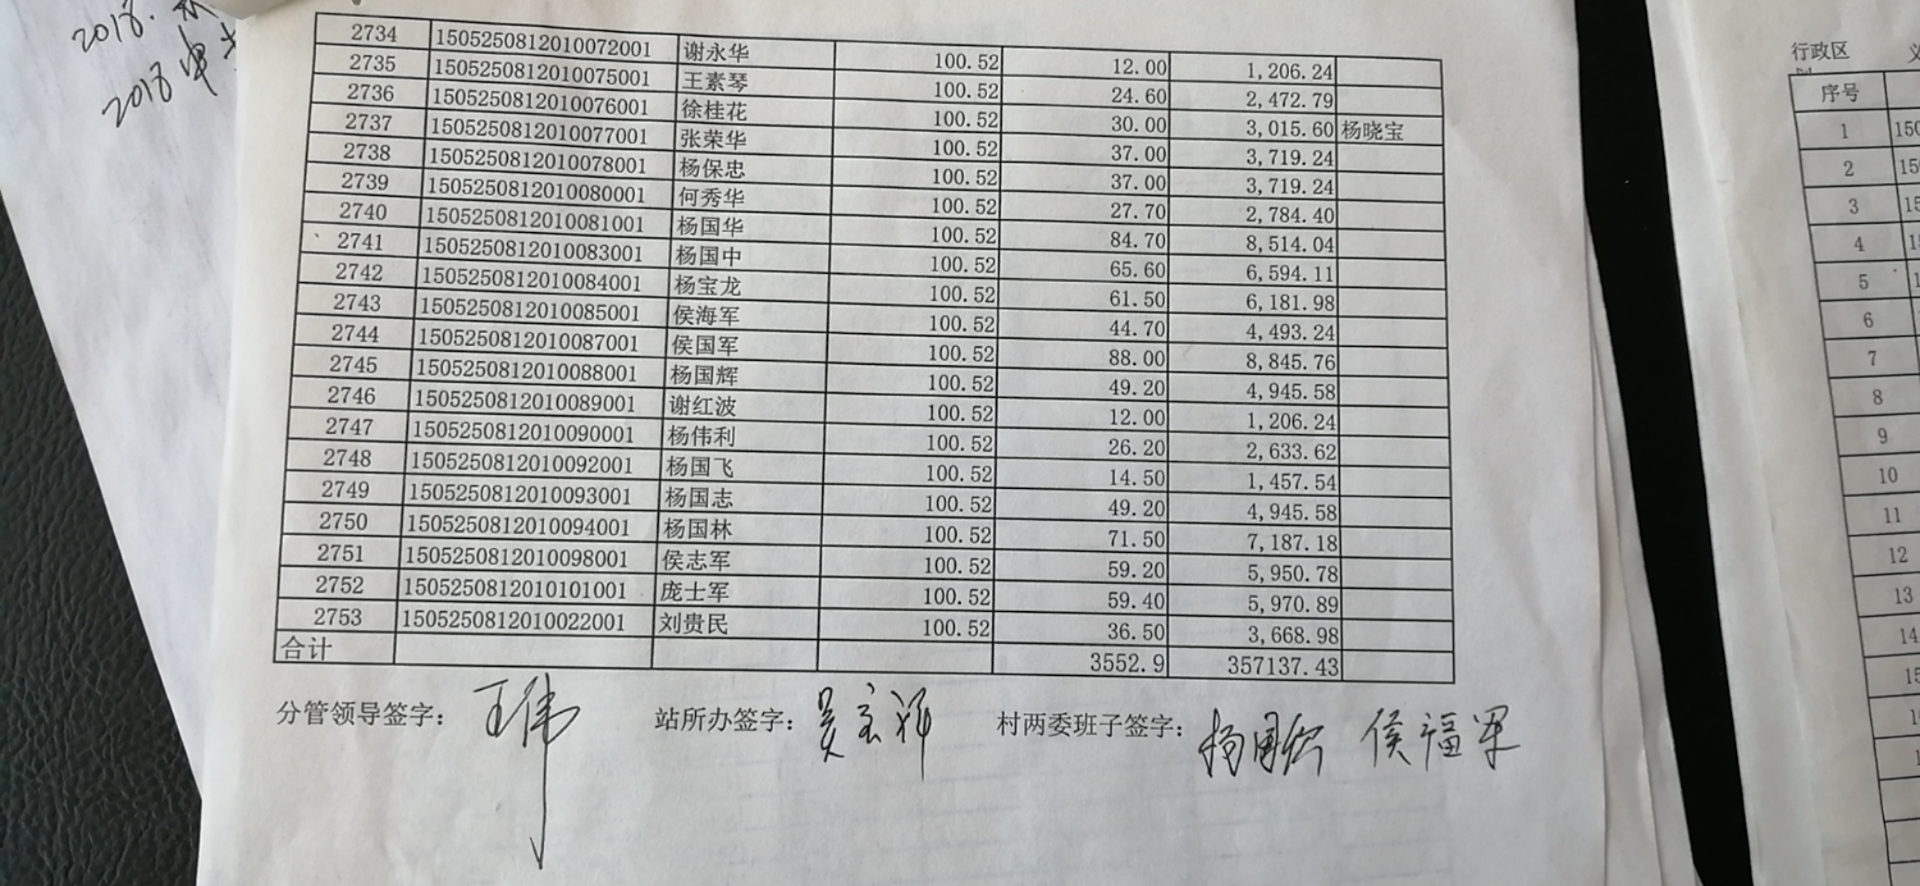 2018.
2018 申
2734 1505250812010072001 谢永华 100.52 12.00 1,206.24
2735 1505250812010075001 王素琴 100.52 24.60 2,472.79
2736 1505250812010076001 徐桂花 100.52 30.00 3,015.60 杨晓宝
2737 1505250812010077001 张荣华 100.52 37.00 3,719.24
2738 1505250812010078001 杨保忠 100.52 37.00 3,719.24
2739 1505250812010080001 何秀华 100.52 27.70 2,784.40
2740 1505250812010081001 杨国华 100.52 84.70 8,514.04
2741 1505250812010083001 杨国中 100.52 65.60 6,594.11
2742 1505250812010084001 杨宝龙 100.52 61.50 6,181.98
2743 1505250812010085001 侯海军 100.52 44.70 4,493.24
2744 1505250812010087001 侯国军 100.52 88.00 8,845.76
2745 1505250812010088001 杨国辉 100.52 49.20 4,945.58
2746 1505250812010089001 谢红波 100.52 12.00 1,206.24
2747 1505250812010090001 杨伟利 100.52 26.20 2,633.62
2748 1505250812010092001 杨国飞 100.52 14.50 1,457.54
2749 1505250812010093001 杨国志 100.52 49.20 4,945.58
2750 1505250812010094001 杨国林 100.52 71.50 7,187.18
2751 1505250812010098001 侯志军 100.52 59.20 5,950.78
2752 1505250812010101001 庞士军 100.52 59.40 5,970.89
2753 1505250812010022001 刘贵民 100.52 36.50 3,668.98
合计 3552.9 357137.43
分管领导签字： 王伟 站所办签字： 村两委班子签字： 侯福
行政区
序号
1 150
2 15
3 15
4 1
5 1
6
7
8
9
10
11
12
13
14
15
1
1